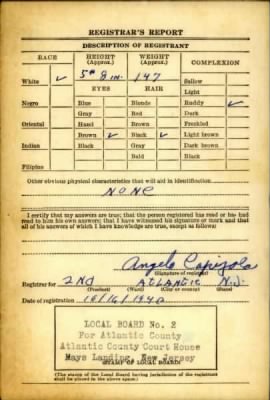 REGISTRAR'S REPORT
DESCRIPTION OF REGISTRANT
RACE HEIGHT (Approx.) WEIGHT (Approx.) COMPLEXION
White ✓ 5ft 8 in. 147 Sallow
EYES HAIR Light
Negro Blue Blonde Ruddy ✓
Gray Red Dark
Oriental Hazel Brown Freckled
Brown ✓ Black ✓ Light brown
Indian Black Gray Dark brown
Bald Black
Filipino
Other obvious physical characteristics that will aid in identification
NONE
I certify that my answers are true; that the person registered has read or has had
read to him his own answers; that I have witnessed his signature or mark and that
all of his answers of which I have knowledge are true, except as follows:
Angelo
(Signature of registrar)
Registrar for 2ND ATLANTIC N.J.
(Precinct) (Ward) (City or county) (State)
Date of registration 10/16/1940
LOCAL BOARD No. 2
For Atlantic County
Atlantic County Court House
Mays Landing, New Jersey
(STAMP OF LOCAL BOARD)
(The stamp of the Local Board having jurisdiction of the registrant
shall be placed in the above space.)